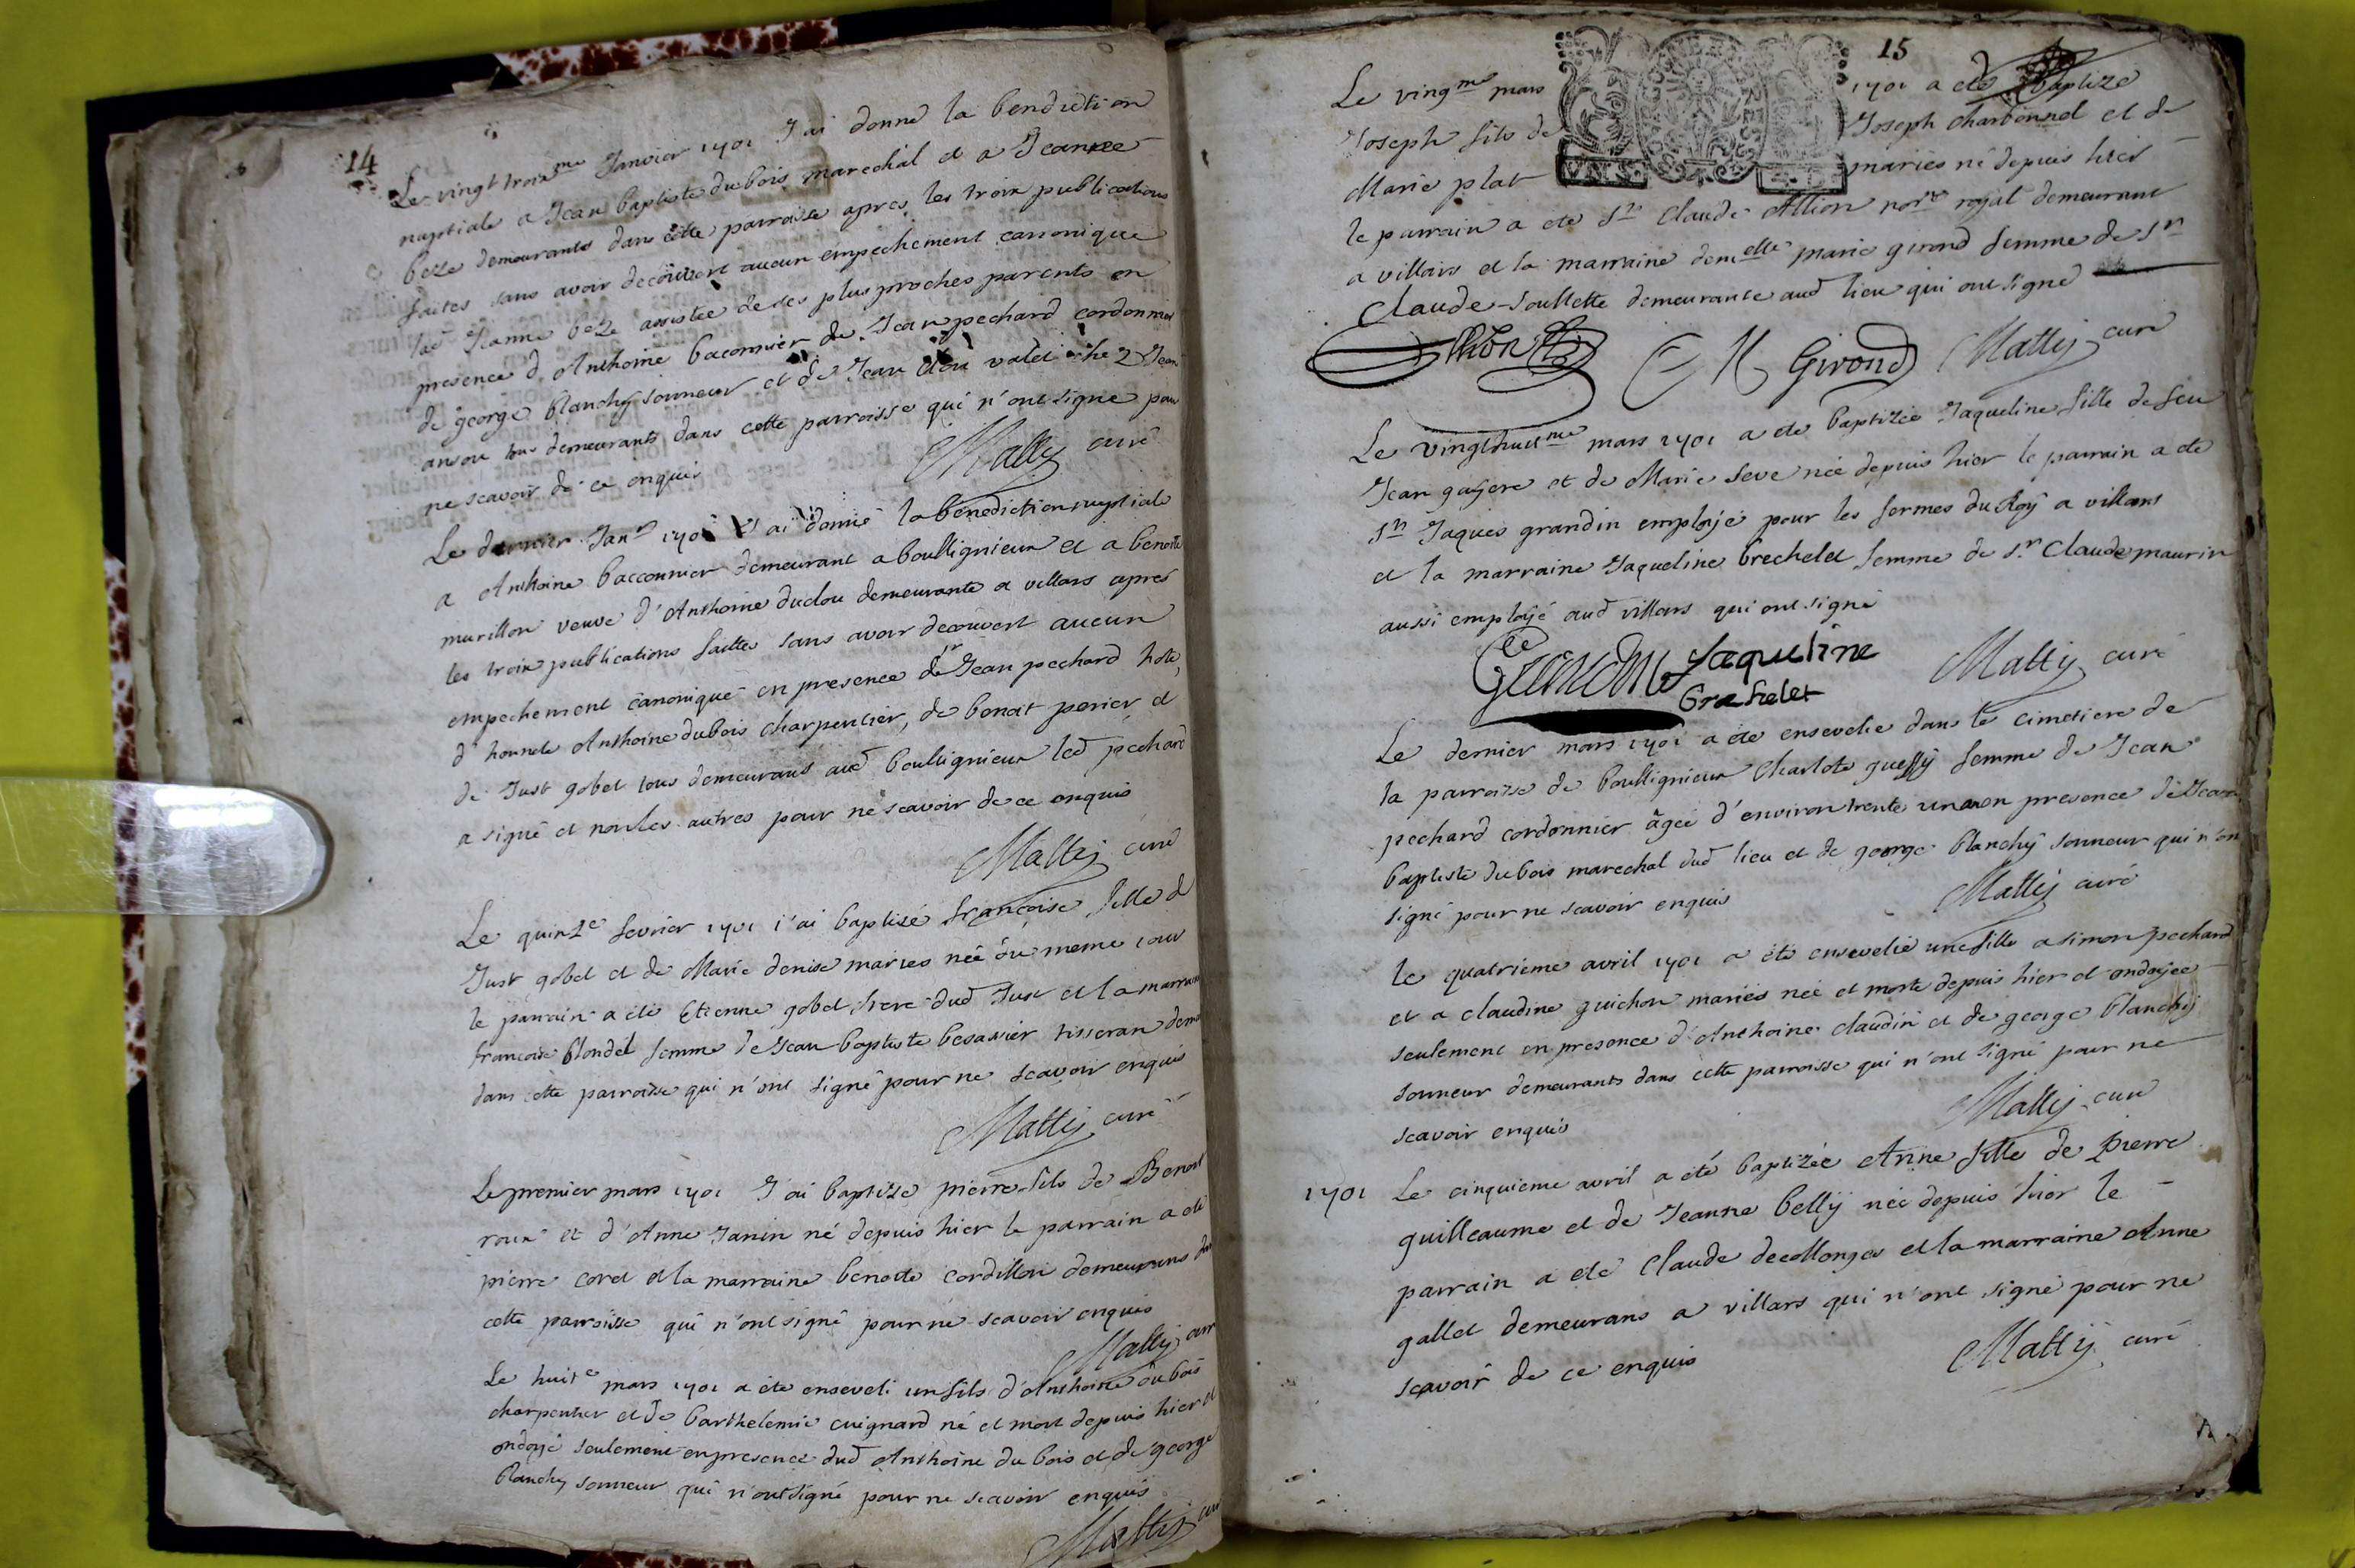 14
Le vingt troixme Janvier 1701 J'ai donné la bendiction
nuptiale a Jean baptiste dubois marechal et a Jeanne
beze demourants dans cette parroisse apres les troix publications
faites sans avoir decouvert aucun empechement cannonique
lad Jeanne beze assistee de ses plus proches parents en
presence d'Anthoine baconnier de Jean pechard cordonnier
de george blanchy sonneur et de Jean valet chez Jean
tous demeurants dans cette parroisse qui n'ont signé pour
ne scavoir de ce enquis
Mattij curé
Le dernier Janr 1701 J'ai donné la benediction nuptiale
a Anthoine bacconnier demeurant a boullignieux et a benoite
murillon veuve d'Anthoine duclou demeurante a villars apres
les troix publications faittes sans avoir decouvert aucun
empechement canonique en presence de sr Jean pechard hote,
d'honnete Anthoine dubois charpentier, de benoit perier et
de Just gobet tous demeurans aud boullignieux led pechard
a signé et non les autres pour ne scavoir de ce enquis
Mattij curé
Le quinze fevrier 1701 j'ai baptisé françoise fille de
Just gobet et de Marie denise mariés née du meme jour
le parrain a été Etienne gobet frere dud Just et la marraine
francoise blondel femme de Jean baptiste besassier tisseran deme
dans cette parroisse qui n'ont signé pour ne scavoir enquis
Mattij curé
Le premier mars 1701 J'ai baptise pierre fils de Benoit
roux et d'Anne Janin né depuis hier le parrain a eté
pierre coret et la marraine benoite cordillon demeurans dans
cette parroisse qui n'ont signé pour ne scavoir enquis
Mattij curé
Le huite mars 1701 a été enseveli un fils d'Anthoine dubois
charpentier et de barthelemie cuignard né et mort depuis hier et
ondoyé seulement en presence dud Anthoine du bois et de george
blanchy sonneur qui n'ont signé pour ne scavoir enquis
Mattij curé
15
Le vingme mars 1701 a eté baptizé
Joseph fils de Joseph charbonnel et de
Marie plat mariés né depuis hier
le parrain a eté sr Claude Allion norre royal demeurant
a villars et la marraine demelle marie girond femme de sr
Claude soullette demeurante aud lieu qui ont signé
Allion M Girond Mattij curé
Le vingthuitme mars 1701 a eté baptizée Jaqueline fille de feu
Jean gayere et de Marie seve née depuis hier le parrain a eté
sr Jaques grandin employé pour les fermes du Roy a villars
et la marraine Jaqueline brechelet femme de sr Claude maurin
aussi employé aud villars qui ont signé
Jaqueline
Mattij curé
Le dernier mars 1701 a été ensevelie dans le cimetiere de
la parroisse de boullignieux Charlote guessy femme de Jean
pechard cordonnier âgée d'environ trente un an en presence de Jean
baptiste dubois marechal dud lieu et de george blanchy sonneur qui n'on
signé pour ne scavoir enquis
Mattij curé
le quatrieme avril 1701 a été ensevelie une fille a simon pechard
et a claudine guichon mariés née et morte depuis hier et ondoyée
seulement en presence d'Anthoine claudin et de george blanchy
sonneur demeurants dans cette parroisse qui n'ont signé pour ne
scavoir enquis
Mattij curé
1701 Le cinquieme avril a été baptizée Anne fille de pierre
guilleaume et de Jeanne belly née depuis hier le
parrain a eté Claude decollonges et la marraine Anne
gallet demeurans a villars qui n'ont signé pour ne
scavoir de ce enquis
Mattij curé